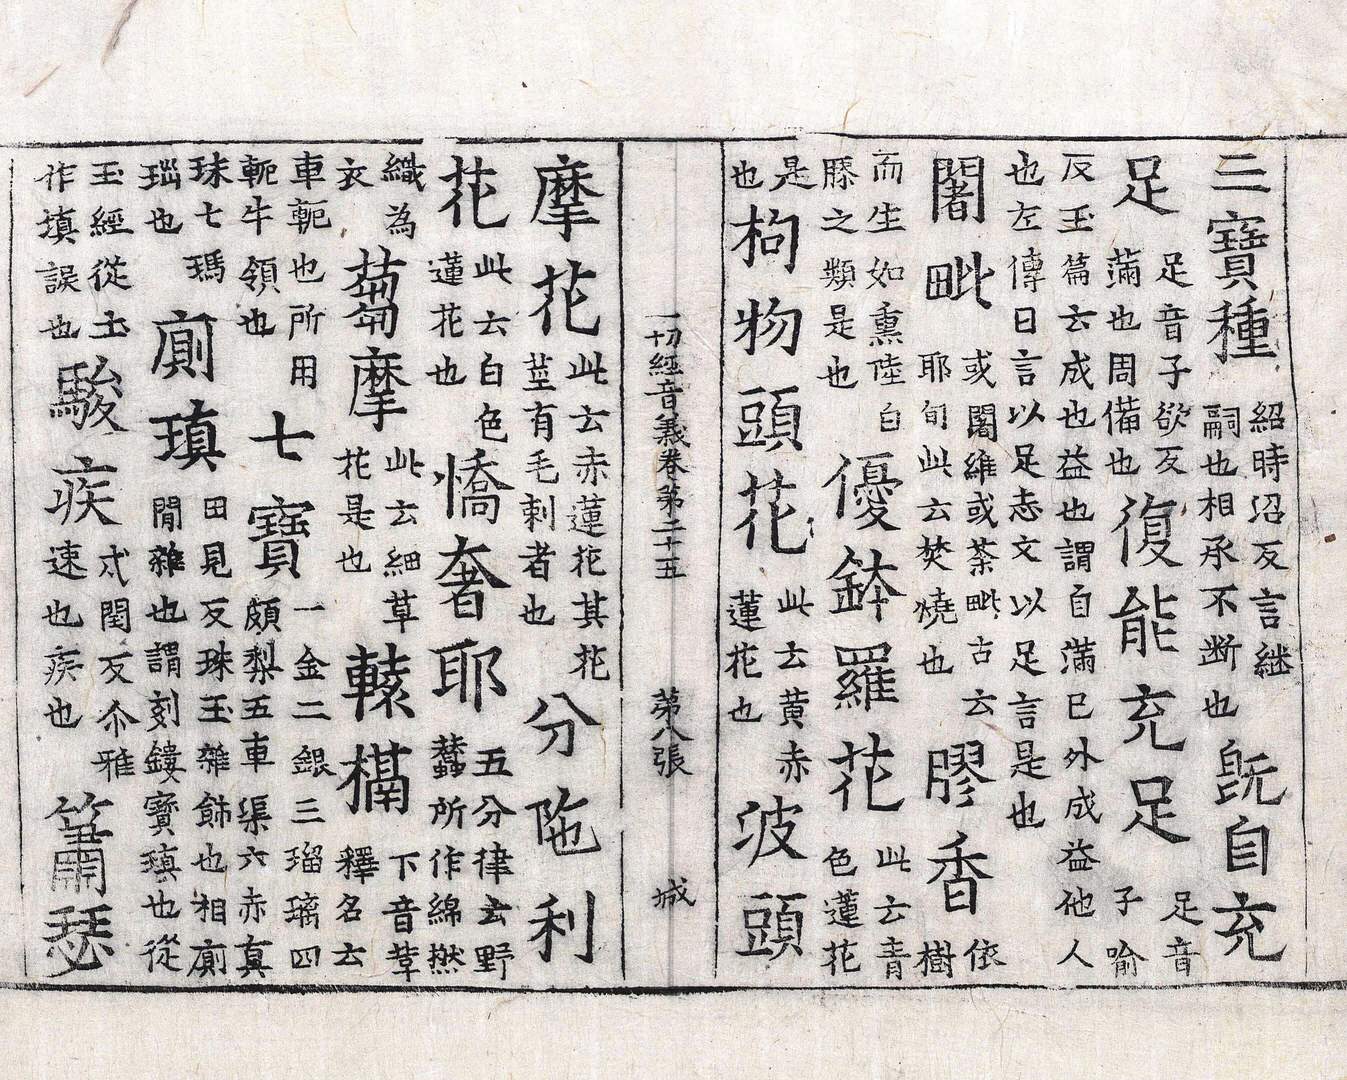 三寶種紹時沼反言継嗣也相承不断也既自充
足足音子欲反滿也周備也復能充足足音子喻
反玉篇云成也益也謂自滿已外成益他人也左傳曰言以足志文以足言是也
闍毗或闍維或荼毗古云耶旬此云焚燒也膠香依樹
而生如熏陸白膠之類是也優鉢羅花此云青色蓮花
是也枸物頭花此云黄赤蓮花也波頭
一切經音義卷第二十五 第八張 城
摩花此云赤蓮花其花莖有毛刺者也分陁利
花此云白色蓮花也憍奢耶五分律云野蠶所作綿撚
織為衣蒭摩此云細草花是也轅槅下音革釋名云
車軛也所用軛牛領也七寶一金二銀三瑠璃四頗梨五車渠六赤真
珠七瑪瑙也廁瑱田見反珠玉雜飾也相廁間雜也謂刻鏤寶瑱也從
玉經從土作填誤也駿疾閏反尒雅速也疾也簫瑟